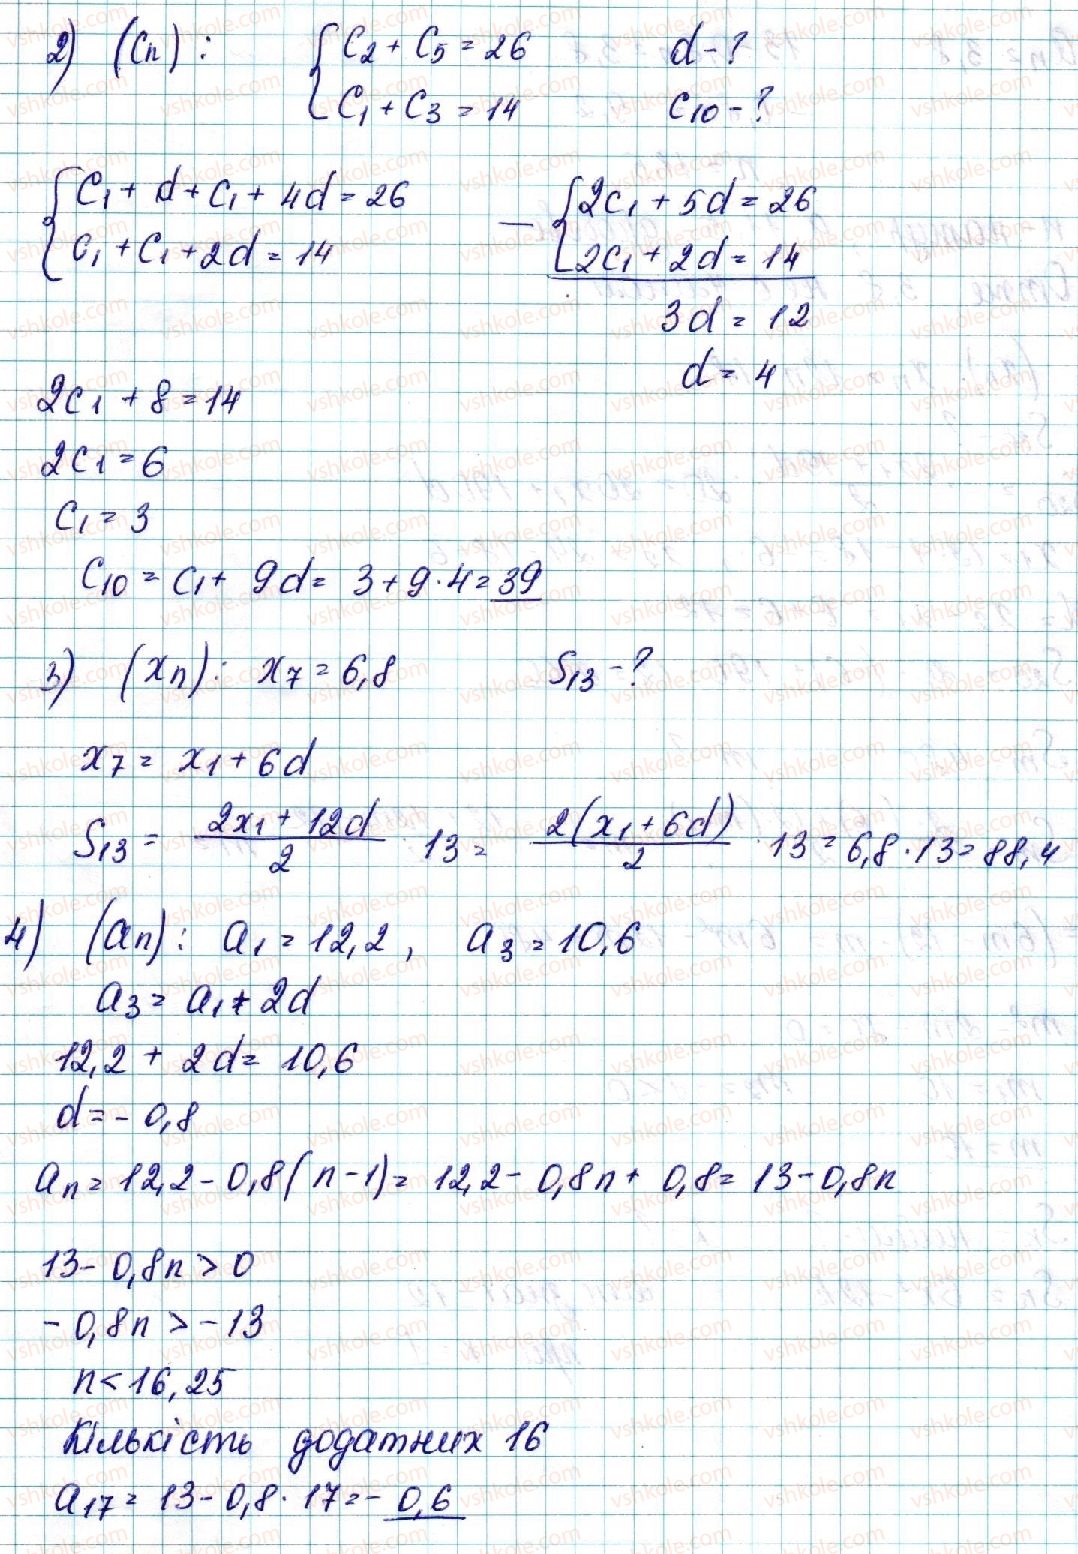 2) (Cn): { C2 + C5 = 26   d - ?
C1 + C3 = 14   C10 - ?
{ C1 + d + C1 + 4d = 26
C1 + C1 + 2d = 14
- { 2C1 + 5d = 26
2C1 + 2d = 14
3d = 12
d = 4
2C1 + 8 = 14
2C1 = 6
C1 = 3
C10 = C1 + 9d = 3 + 9·4 = 39
3) (xn): x7 = 6,8   S13 - ?
x7 = x1 + 6d
S13 = (2x1 + 12d)/2 · 13 = 2(x1 + 6d)/2 · 13 = 6,8·13 = 88,4
4) (an): a1 = 12,2, a3 = 10,6
a3 = a1 + 2d
12,2 + 2d = 10,6
d = - 0,8
an = 12,2 - 0,8(n-1) = 12,2 - 0,8n + 0,8 = 13 - 0,8n
13 - 0,8n > 0
- 0,8n > -13
n < 16,25
Кількість додатних 16
a17 = 13 - 0,8·17 = - 0,6
vshkole.com